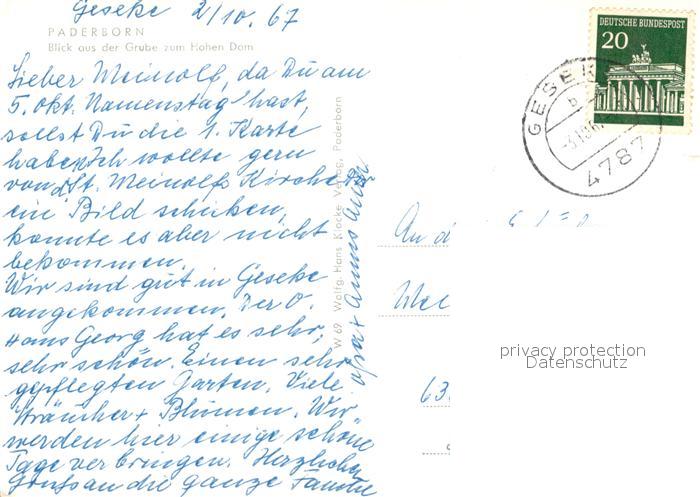 Geseke 2/10. 67
PADERBORN
Blick aus der Grube zum Hohen Dom
Lieber Meinolf, da Du am
5. Okt. Namenstag hast,
sollst Du die 1. Karte
haben. Ich wollte gern
von d. St. Meinolfs Kirche
ein Bild schicken,
konnte es aber nicht
bekommen.
Wir sind gut in Geseke
angekommen. Der O.
Hans Georg hat es sehr,
sehr schön. Einen sehr
gepflegten Garten. Viele
Sträucher + Blumen. Wir
werden hier einige schöne
Tage verbringen. Herzliche
Grüße an die ganze Familie
Opa +
W 69 Wolfg. Hans Klocke Verlag, Paderborn
DEUTSCHE BUNDESPOST
20
GESEKE
b
4787
An d
Mei
63
privacy protection
Datenschutz